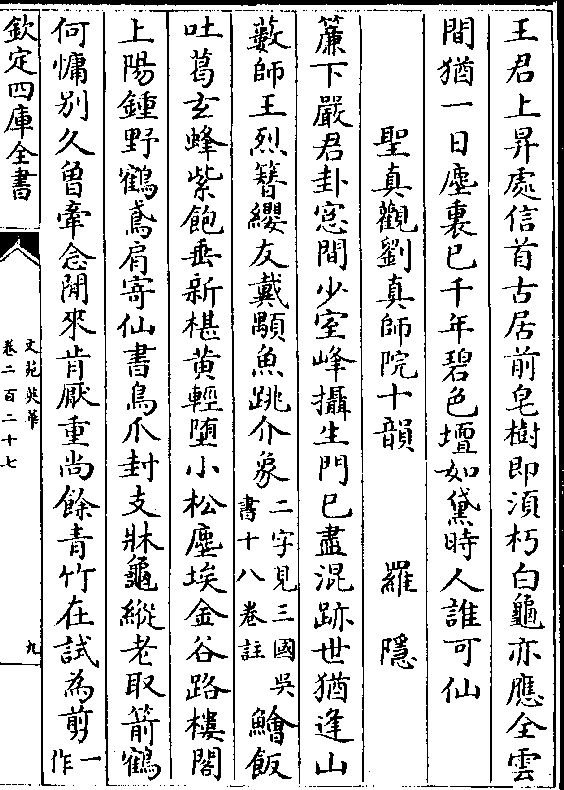 王君上昇處信首古居前皂樹即湏朽白龜亦應全雲
間猶一日塵裏已千年碧色壇如黛時人誰可仙
聖真觀劉真師院十韻 羅隱
簾下嚴君卦窓間少室峰攝生門已盡混跡世猶逢山
藪師王烈簪纓友戴顒魚跳介象二字見三國吳書十八卷註鱠飯
吐葛玄蜂紫飽垂新椹黄輕墮小松塵埃金谷路樓閣
上陽鍾野鶴鳶肩寄仙書鳥爪封支牀龜縱老取箭鶴
何慵别久曽牽念閒來肯厭重尚餘青竹在試為剪一作
欽定四庫全書
文苑英華
卷二百二十七
九